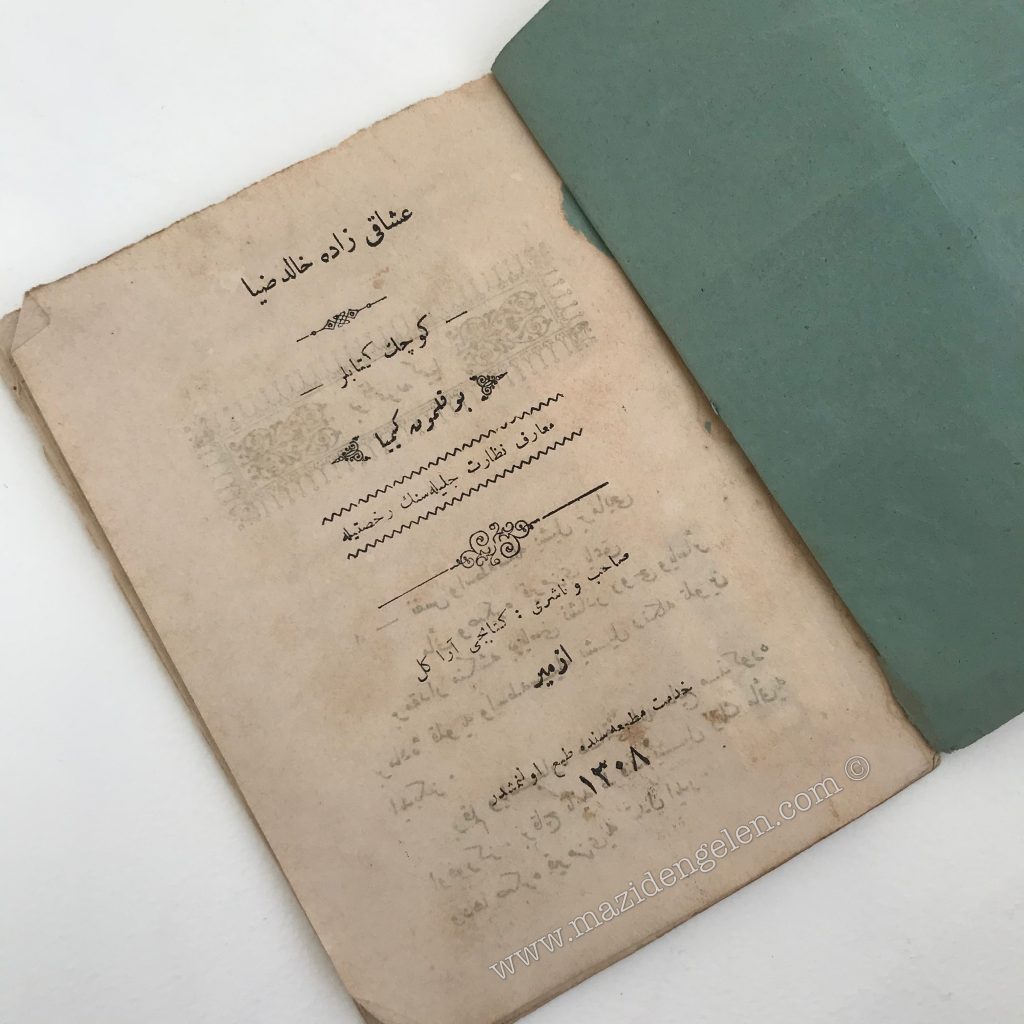 عشاقی زاده خالد ضیا
— كوچك كتابلر —
بوقلمون كیمیا
معارف نظارت جلیله‌سنك رخصتیله
صاحب و ناشری : كتابجی آراكل
ازمیر
خدمت مطبعه‌سنده طبع اولنمشدر
١٣٠٨
www.mazidengelen.com ©